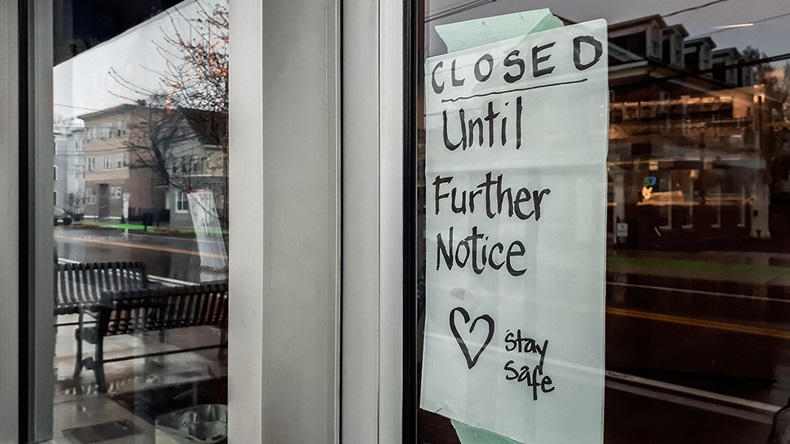 CLOSED
Until
Further
Notice
stay
safe